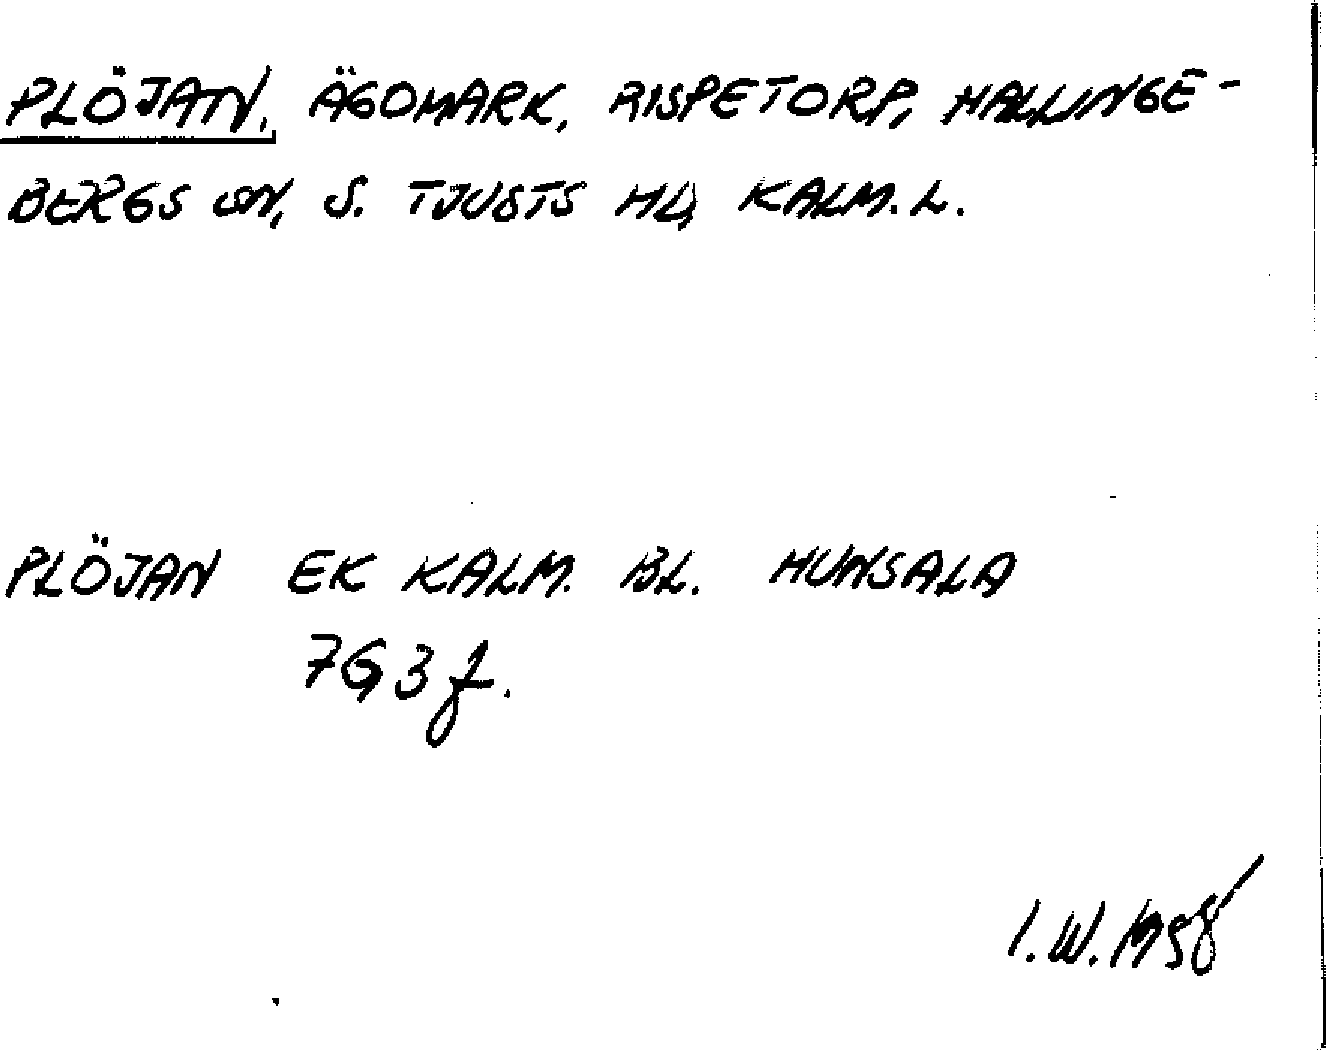 PLÖJAN, ÄGOMARK, RISPETORP, HALLINGE-
BERGS SN, S. TJUSTS HD, KALM. L.
PLÖJAN EK KALM. BL. HUNSALA
7G3f.
I.W. 1958